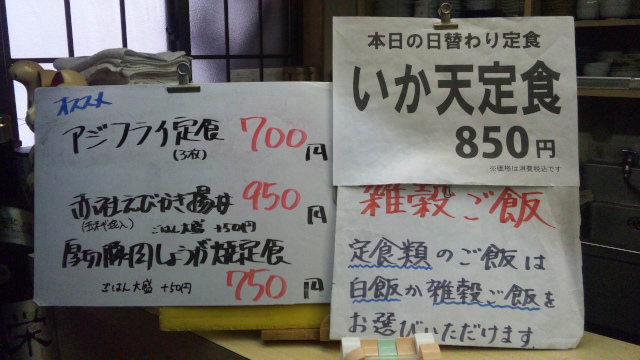 オススメ
アジフライ定食 700円
(3枚)
赤社えびかき揚丼 950円
ごはん大盛 +50円
厚切豚肉しょうが焼定食
ごはん大盛 +50円 750円
本日の日替わり定食
いか天定食
850円
※価格は消費税込です
雑穀ご飯
定食類のご飯は
白飯か雑穀ご飯を
お選びいただけます